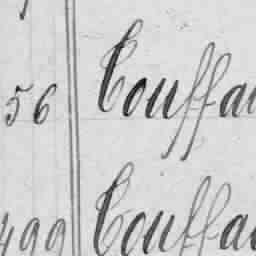 56 Couffa
499 Couffa